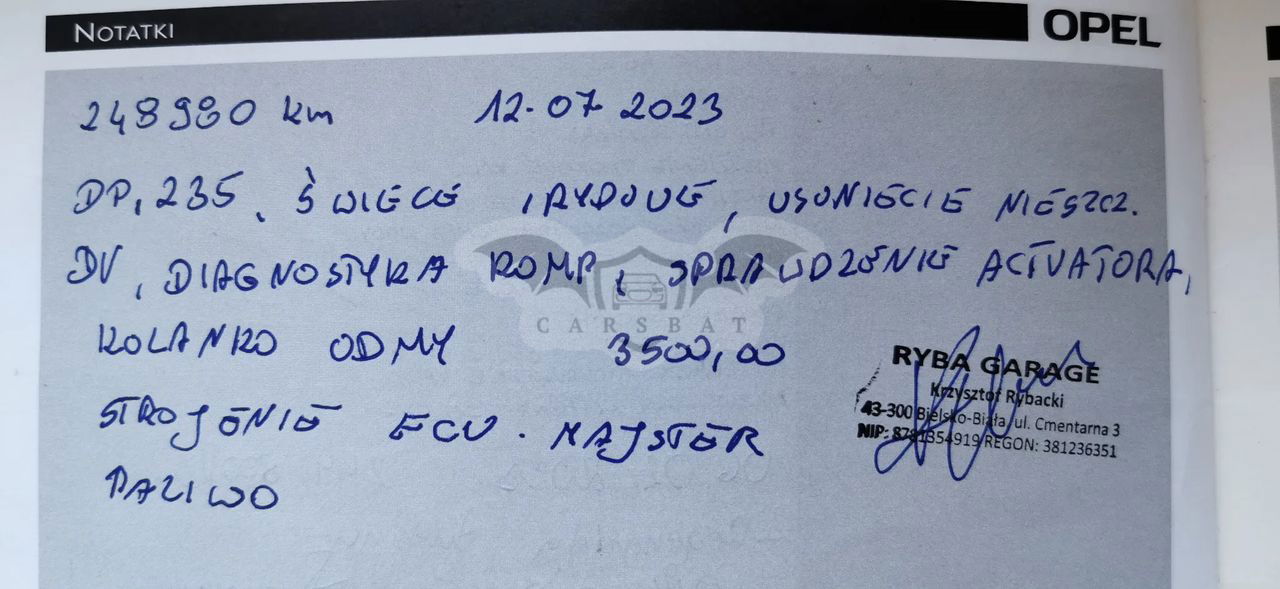 NOTATKI
OPEL
248980 km 12-07 2023
DP, 235, ŚWIECE IRYDOWE, USUNIECIE NIESZCZ.
DV, DIAGNOSTYKA KOMP, SPRAWDZENIE ACTVATORA,
KOLANKO ODMY 3500,00
STROJENIE ECU. MAJSTER
PALIWO
CARSBAT
RYBA GARAGE
Krzysztof Rybacki
43-300 Bielsko-Biała, ul. Cmentarna 3
REGON: 381236351